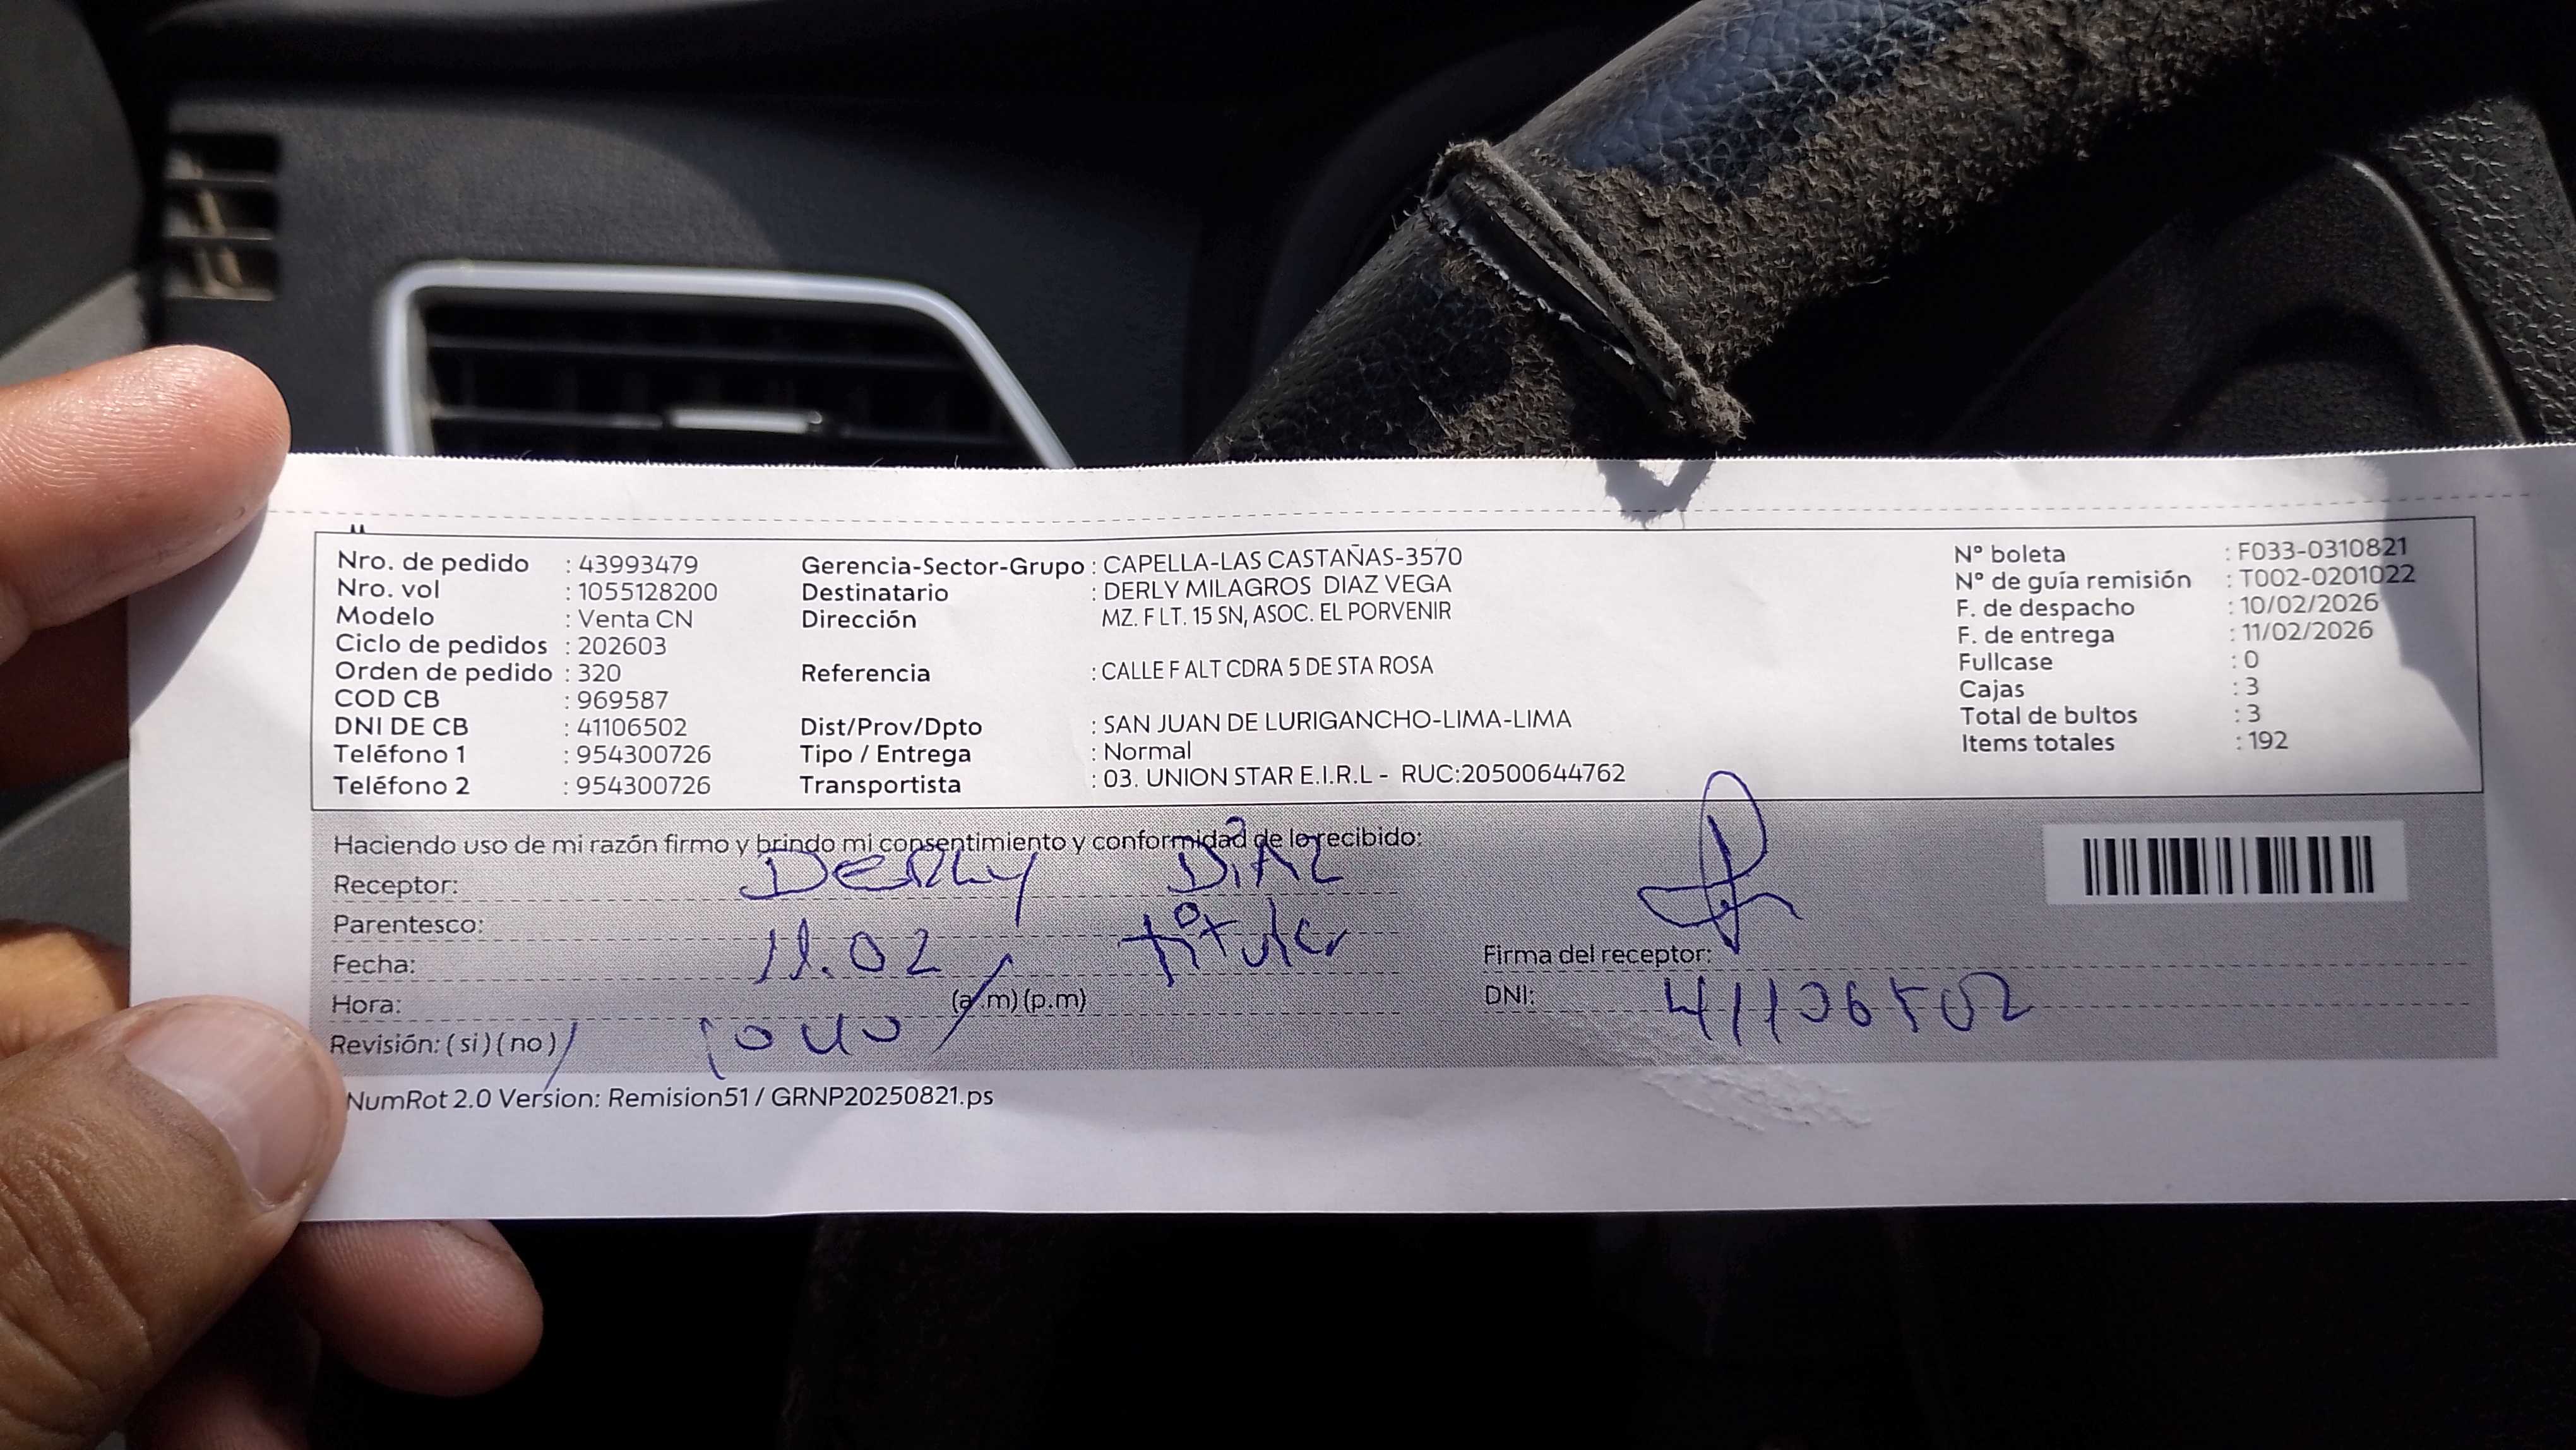 Nro. de pedido : 43993479
Nro. vol : 1055128200
Modelo : Venta CN
Ciclo de pedidos : 202603
Orden de pedido : 320
COD CB : 969587
DNI DE CB : 41106502
Teléfono 1 : 954300726
Teléfono 2 : 954300726
Gerencia-Sector-Grupo : CAPELLA-LAS CASTAÑAS-3570
Destinatario : DERLY MILAGROS DIAZ VEGA
Dirección MZ. F LT. 15 SN, ASOC. EL PORVENIR
Referencia : CALLE F ALT CDRA 5 DE STA ROSA
Dist/Prov/Dpto : SAN JUAN DE LURIGANCHO-LIMA-LIMA
Tipo / Entrega : Normal
Transportista : 03. UNION STAR E.I.R.L - RUC:20500644762
N° boleta : F033-0310821
N° de guía remisión : T002-0201022
F. de despacho : 10/02/2026
F. de entrega : 11/02/2026
Fullcase : 0
Cajas : 3
Total de bultos : 3
Items totales : 192
Haciendo uso de mi razón firmo y brindo mi consentimiento y conformidad de lo recibido:
Receptor: DERLY DiAZ
Parentesco: titular
Fecha: 11.02
Hora: (a.m) (p.m)
Revisión: ( si ) ( no )
Firma del receptor:
DNI: 41106502
NumRot 2.0 Version: Remision51 / GRNP20250821.ps